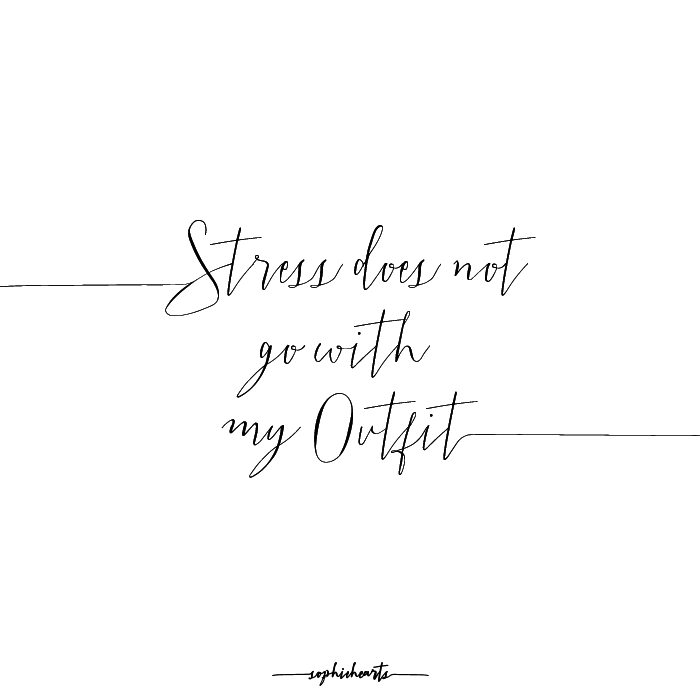 Stress does not
go with
my Outfit
sophiehearts